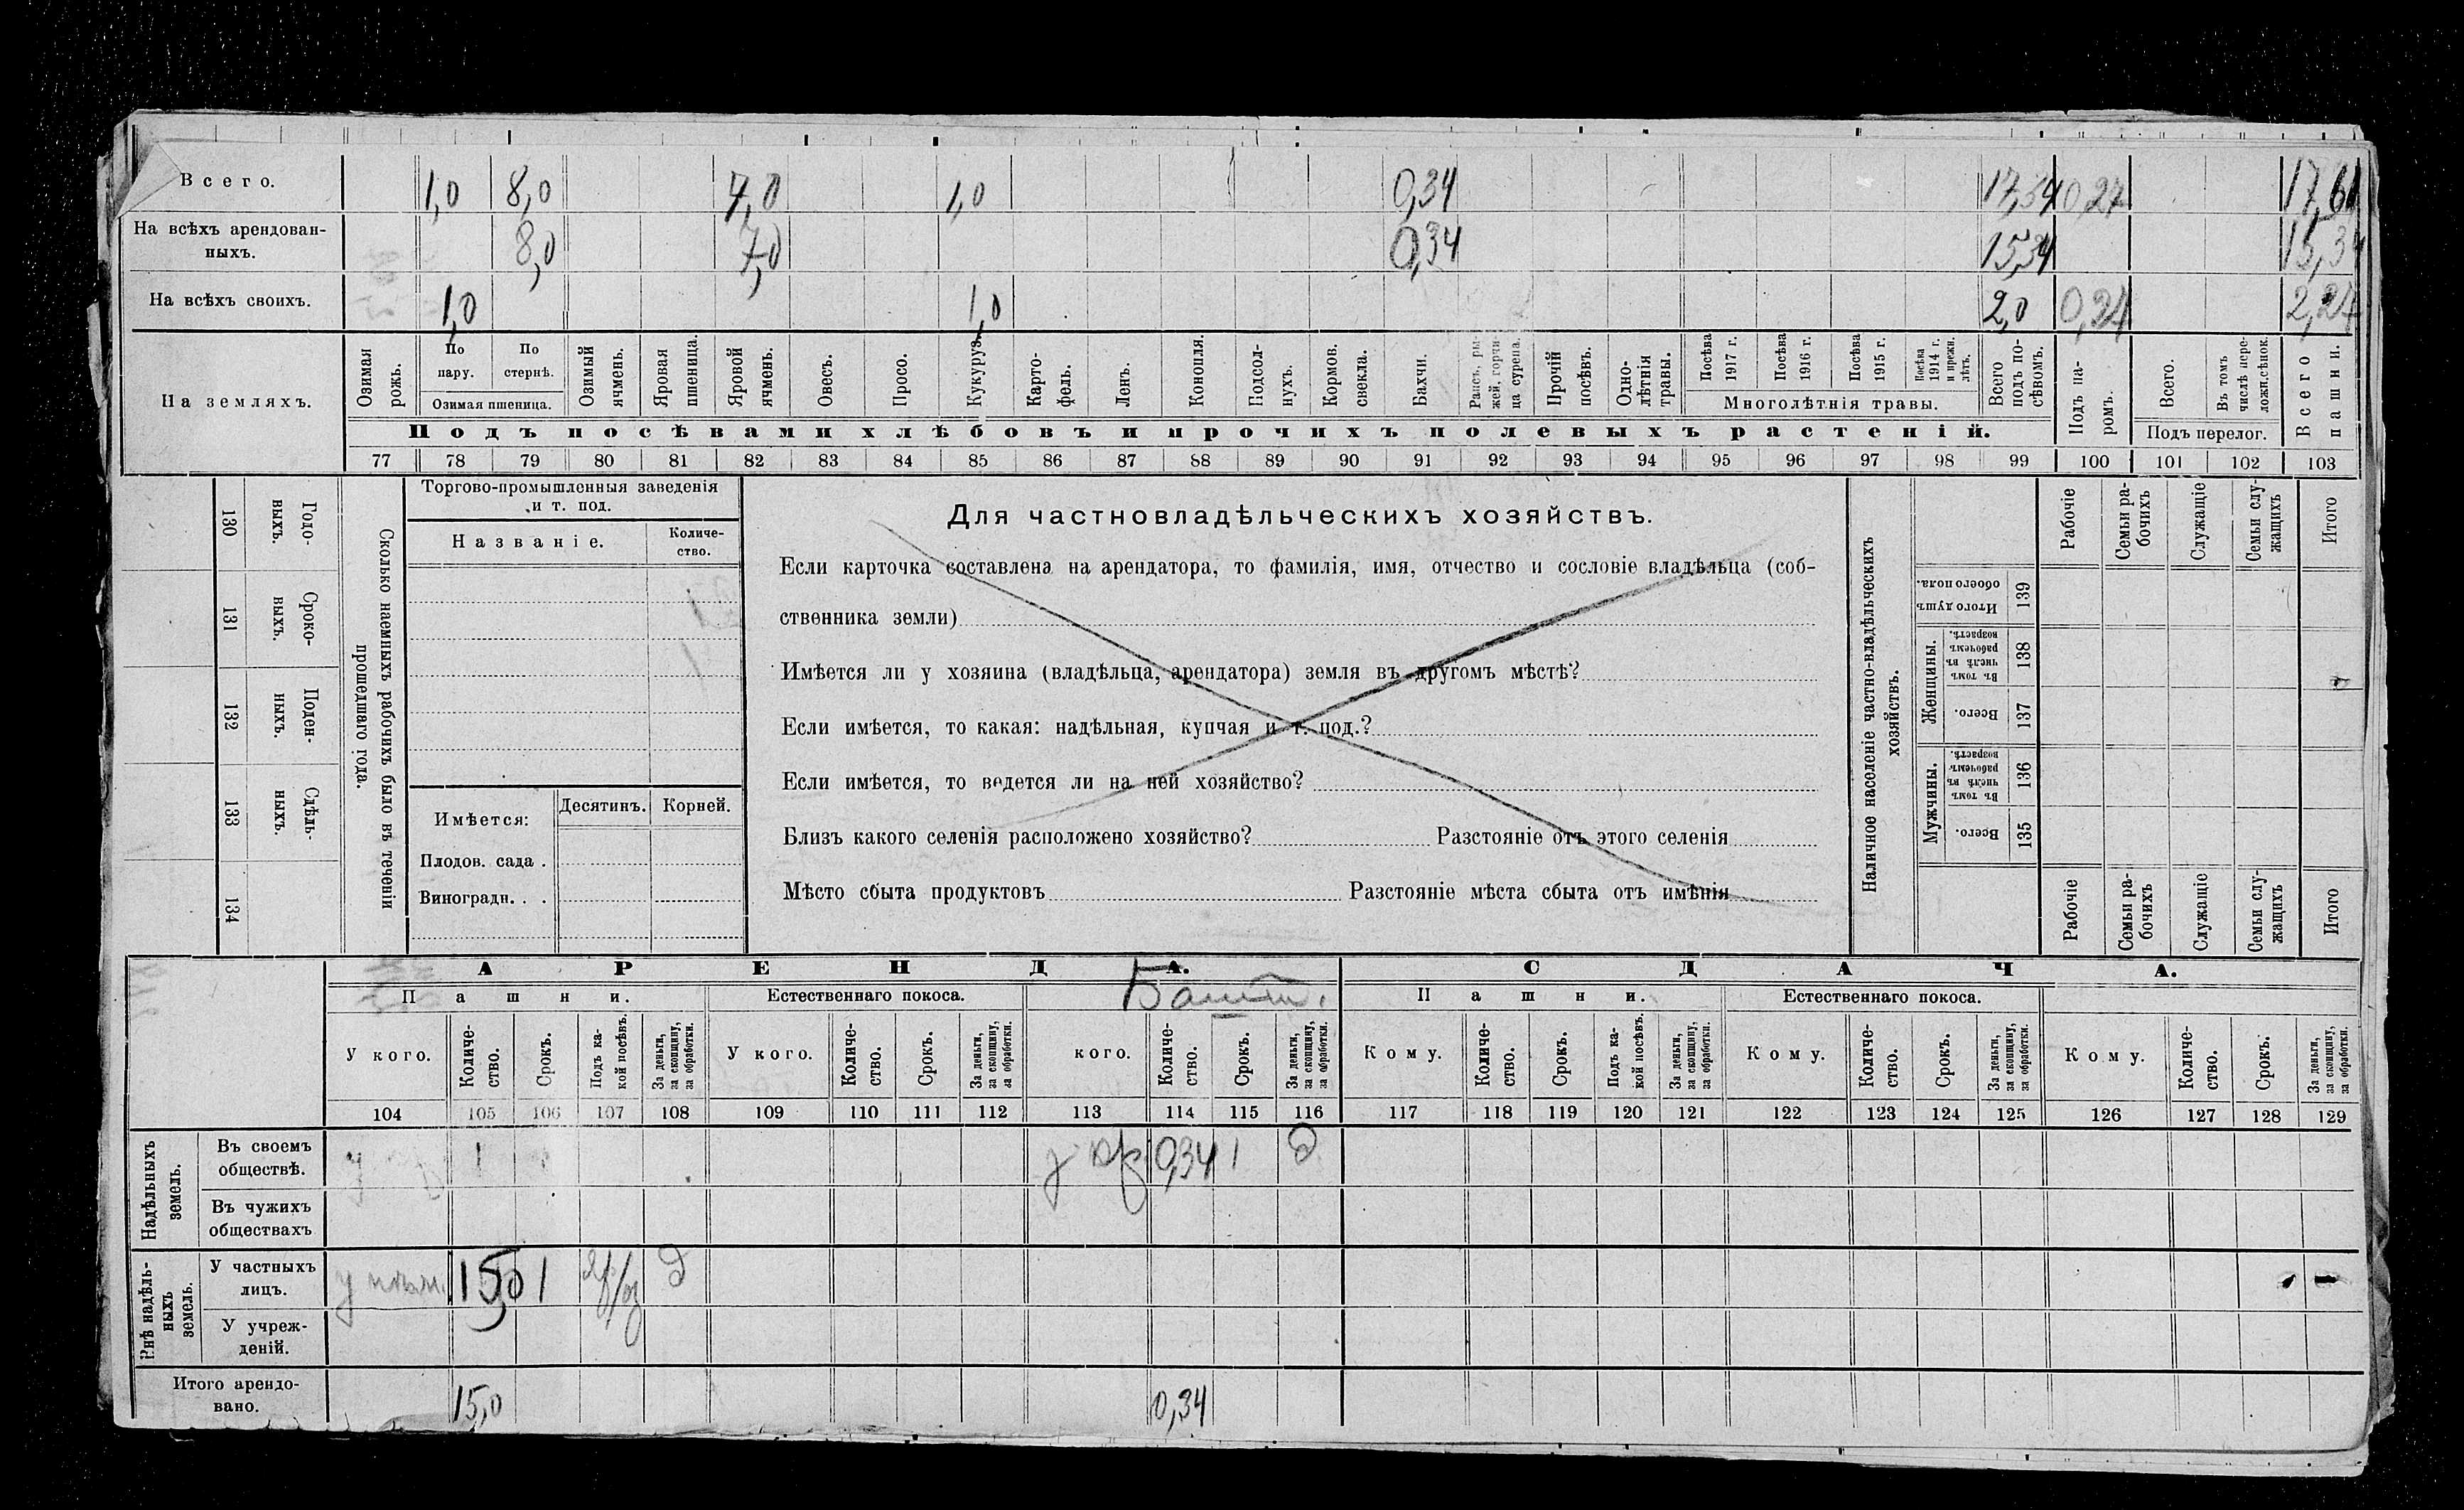 Всего. 1,0 8,0 7,0 1,0 0,34 17,34 0,27 17,61
На всѣхъ арендован-
ныхъ. 8,0 7,0 0,34 15,34 15,34
На всѣхъ своихъ. 1,0 1,0 2,0 0,27 2,27
На земляхъ.
Озимая рожь.
По пару.
По стернѣ.
Озимая пшеница.
Озимый ячмень.
Яровая пшеница.
Яровой ячмень.
Овесъ.
Просо.
Кукуруз.
Карто-
фель.
Ленъ.
Конопля.
Подсол-
нухъ.
Кормов. свекла.
Бахчи.
Рапсъ, ры-
жей, горчи-
ца сурепа.
Прочій посѣвъ.
Одно-
лѣтнія травы.
Посѣва 1917 г.
Посѣва 1916 г.
Посѣва 1915 г.
Посѣва 1914 г. и прежн. лѣтъ.
Многолѣтнія травы.
Всего подъ по-
сѣвомъ.
Подъ па-
ромъ.
Всего.
Въ томъ числѣ пере-
ложн. сѣнок.
Подъ перелог.
Всего пашни.
Подъ посѣвами хлѣбовъ и прочихъ полевыхъ растеній.
77 78 79 80 81 82 83 84 85 86 87 88 89 90 91 92 93 94 95 96 97 98 99 100 101 102 103
130 Годо-
ныхъ.
131 Сроко-
ныхъ.
132 Поден-
ныхъ.
133 Сдѣль-
ныхъ.
134
Сколько наемныхъ рабочихъ было въ теченіи
прошедшаго года.
Торгово-промышленныя заведенія
и т. под.
Названіе.
Количе-
ство.
Имѣется:
Десятинъ.
Корней.
Плодов. сада .
Виноградн. . .
Для частновладѣльческихъ хозяйствъ.
Если карточка составлена на арендатора, то фамилія, имя, отчество и сословіе владѣльца (соб-
ственника земли)
Имѣется ли у хозяина (владѣльца, арендатора) земля въ другомъ мѣстѣ?
Если имѣется, то какая: надѣльная, купчая и т. под.?
Если имѣется, то ведется ли на ней хозяйство?
Близъ какого селенія расположено хозяйство? Разстояніе отъ этого селенія
Мѣсто сбыта продуктовъ Разстояніе мѣста сбыта отъ имѣнія
Наличное населеніе частно-владѣльческихъ
хозяйствъ.
Рабочіе
Семьи ра-
бочихъ
Служащіе
Семьи слу-
жащихъ
Итого
Итого душъ обоего пола. 139
Женщины.
Въ томъ числѣ въ рабочемъ возрастѣ. 138
Всего. 137
Мужчины.
Въ томъ числѣ въ рабочемъ возрастѣ. 136
Всего. 135
Рабочіе
Семьи ра-
бочихъ
Служащіе
Семьи слу-
жащихъ
Итого
АРЕНДА.
СДАЧА.
Пашни.
Естественнаго покоса.
Пашни.
Естественнаго покоса.
У кого.
Количе-
ство.
Срокъ.
Подъ ка-
кой посѣвъ.
За деньги,
за скопщину,
за обработки.
У кого.
Количе-
ство.
Срокъ.
За деньги,
за скопщину,
за обработки.
кого.
Количе-
ство.
Срокъ.
За деньги,
за скопщину,
за обработки.
Кому.
Количе-
ство.
Срокъ.
Подъ ка-
кой посѣвъ.
За деньги,
за скопщину,
за обработки.
Кому.
Количе-
ство.
Срокъ.
За деньги,
за скопщину,
за обработки.
Кому.
Количе-
ство.
Срокъ.
За деньги,
за скопщину,
за обработки.
104 105 106 107 108 109 110 111 112 113 114 115 116 117 118 119 120 121 122 123 124 125 126 127 128 129
Надѣльныхъ
земель.
Въ своемъ
обществѣ. 0,34 1 д
Въ чужихъ
обществахъ
Внѣ надѣль-
ныхъ
земель.
У частныхъ
лицъ. 15,0 1 д
У учреж-
деній.
Итого арендо-
вано. 15,0 0,34